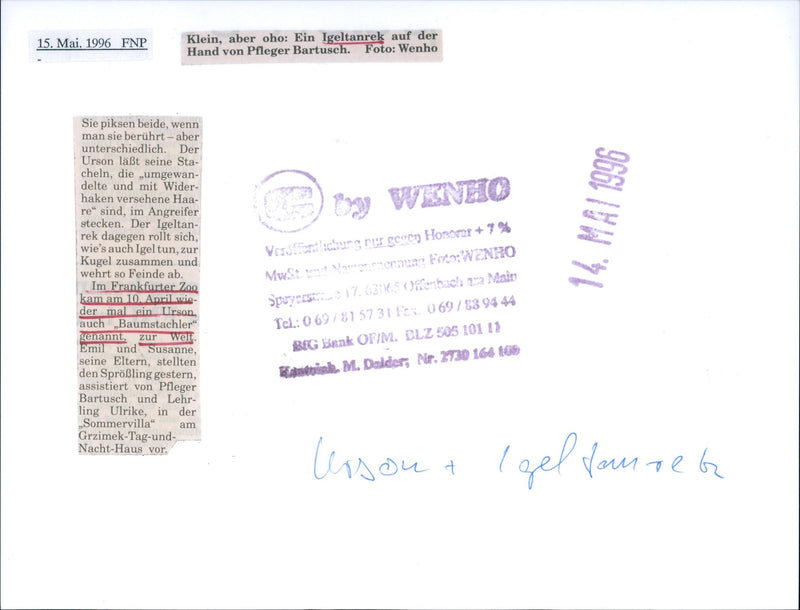 15. Mai. 1996 FNP
Klein, aber oho: Ein Igeltanrek auf der
Hand von Pfleger Bartusch. Foto: Wenho
Sie piksen beide, wenn
man sie berührt – aber
unterschiedlich. Der
Urson läßt seine Sta-
cheln, die „umgewan-
delte und mit Wider-
haken versehene Haa-
re“ sind, im Angreifer
stecken. Der Igeltan-
rek dagegen rollt sich,
wie's auch Igel tun, zur
Kugel zusammen und
wehrt so Feinde ab.
Im Frankfurter Zoo
kam am 10. April wie-
der mal ein Urson,
auch „Baumstachler“
genannt, zur Welt.
Emil und Susanne,
seine Eltern, stellten
den Sprößling gestern,
assistiert von Pfleger
Bartusch und Lehr-
ling Ulrike, in der
„Sommervilla“ am
Grzimek-Tag-und-
Nacht-Haus vor.
by WENHO
Veröffentlichung nur gegen Honorar + 7 %
MwSt. und Namensnennung Foto: WENHO
Speyerstrasse 17, 63065 Offenbach am Main
Tel.: 0 69 / 81 57 31 Fax. 0 69 / 83 94 44
BfG Bank OF/M. BLZ 505 101 11
M. Deider, Nr. 2730 164 100
14. MAI 1996
Urson + Igeltanrek